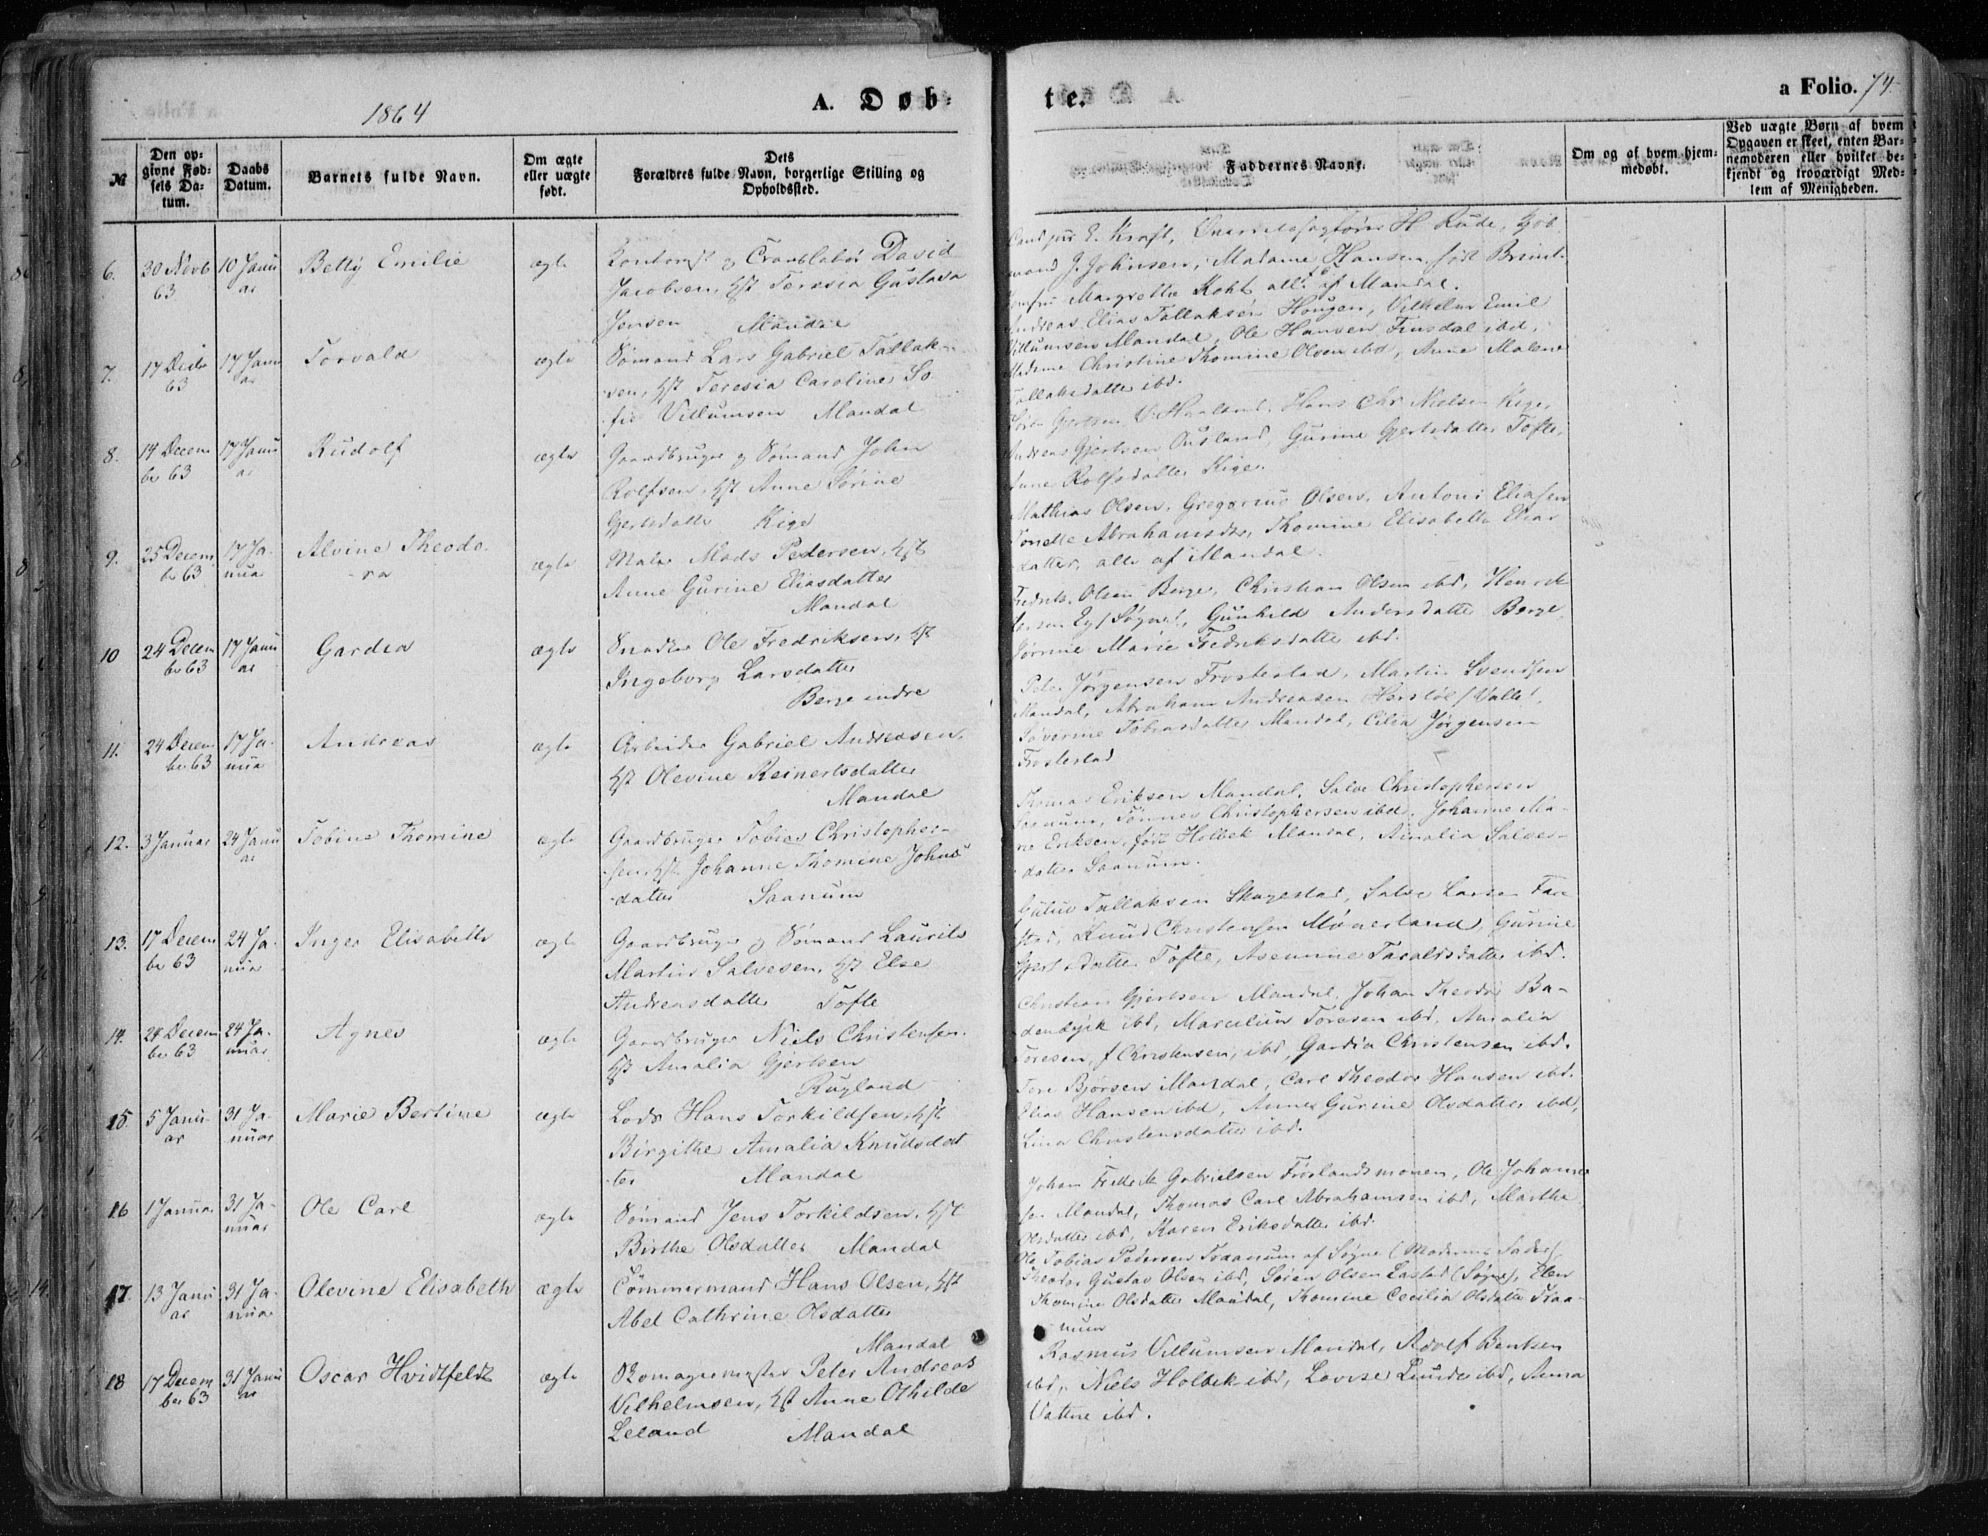 1864
A. Døb-
te.
a Folio. 74.
№
Den op-
givne Fød-
sels Da-
tum.
Daabs
Datum.
Barnets fulde Navn.
Om ægte
eller uægte
født.
Dets
Forældres fulde Navn, borgerlige Stilling og
Opholdssted.
Faddernes Navne.
Om og af hvem hjem-
medøbt.
Ved uægte Børn af hvem
Opgaven er skeet, enten Bar-
nemoderen eller hvilket be-
kjendt og troværdigt Med-
lem af Menigheden.
6.
30 Novb
63
10 Janu
ar
Betty Emilie
ægte
David
Jacobsen, hst Teresia Gustava
Jensen Mandal
Cand jur E. Kraft, H Rude,
J. Johnsen, Madame Hansen født
Margrethe alle af Mandal.
7.
17 Decbr
63
17 Janu
ar
Torvald
ægte
Sømand Lars Gabriel Tallak-
sen, hst Teresia Caroline So-
fie Villumsen Mandal
Andreas Elias Tallaksen Hougen, Vilhelm Emil
Villumsen Mandal, Ole Hansen ibd,
Madme Christine Thomine Olsen ibd, Anne Malene
Tallaksdatter ibd.
8.
14 Decem
ber 63
17 Janu
ar
Rudolf
ægte
Gaardbruger og Sømand John
Rolfsen, hst Anne Sørine
Gjertsdatter Kige
Gjertsen Haaland, Hans Chr Nielsen Kige,
Andreas Gjertsen Ausland, Gurine Gjertsdatter Tofte,
Anne Rolfsdatter Kige.
9.
25 Decem
ber 63
17 Ja-
nuar
Alvine Theodo-
ra
ægte
Maler Mads Pedersen, hst
Anne Gurine Eliasdatter
Mandal
Mathias Olsen, Gregorius Olsen, Antoni Eliasen
Tonette Abrahamsdtr, Thomine Elisabeth Elias
datter, alle af Mandal.
10
24 Decem
ber 63
17 Janu
ar
Gardea
ægte
Snedker Ole Fredriksen, hst
Ingeborg Larsdatter
Berge indre
Fredrik Olsen Berge, Christian Olsen ibd, Henrik
Larsen Eg (Søgne), Gunhild Andersdatter Berge,
Jørine Marie Fredriksdatter ibd.
11.
24 Decem
ber 63
17 Ja-
nua
Andreas
ægte
Arbeider Gabriel Andreasen,
hst Olevine Reinertsdatter
Mandal
Peter Jørgensen Frostestad, Martin Svendsen
Mandal, Abraham Andreasen (Valle),
Severine Tobiasdatter Mandal, Cilia Jørgensen
Frostestad
12.
3 Januar
24 Janu
ar
Tobine Thomine
ægte
Gaardbruger Tobias Christopher-
sen, hst Johanne Thomine Johns
datter Saanum
Thomas Eriksen Mandal, Salve Christophersen
Saanum, Tønnes Christophersen ibd, Johanne Ma-
rie Eriksen, født Holbek Mandal, Amalia Salves-
datter Saanum.
13.
17 Decem
ber 63
24 Ja-
nuar
Inger Elisabeth
ægte
Gaardbruger og Sømand Laurits
Martin Salvesen, hst Else
Andreasdatter Tofte
Tallaksen Skogestad, Salve Larsen
Knud Christensen Mønerland, Gurine
Gjertsdatter Tofte, Asemine ibd.
14.
28 Decem
ber 63
24 Ja-
nuar
Agnes
ægte
Gaardbruger Niels Christensen
hst Amalia Gjertsen
Rugland
Christian Gjertsen Mandal, Johan Theodor Ba-
dendyck ibd, Marcelius Toresen ibd, Amalia
Toresen, f Christensen, ibd, Gardia Christensen ibd.
15.
5 Janu-
ar
31 Ja-
nuar
Marie Bertine
ægte
Lods Hans Torkildsen, hst
Birgithe Amalia Knudsdat
ter Mandal
Tore Bjørsen Mandal, Carl Theodor Hansen ibd.
Elias Hansen ibd, Anne Gurine Olsdatter ibd,
Lina Christensdatter ibd.
16
1 Januar
31 Ja-
nuar
Ole Carl
ægte
Sømand Jens Torkildsen, hst
Birthe Olsdatter Mandal
Johan Fredrik Gabrielsen Frøslandsmonen, Ole Johanne-
sen Mandal, Thomas Carl Abrahamsen ibd, Martha
Olsdatter ibd, Karen Eriksdatter ibd.
17.
13 Janu
ar
31 Ja-
nuar
Olevine Elisabeth
ægte
Tømmermand Hans Olsen, hst
Abel Cathrine Olsdatter
Mandal
Ole Tobias Pedersen Traanum af Søgne (Moderens Fader),
Theodor Gustav Olsen ibd, Søren Olsen Lastad (Søgne), Elen
Thomine Olsdatter Mandal, Thomine Cecilia Olsdatter Traa-
num
18
17 Decem
ber 63
31 Janu
ar
Oscar Hvidtfeldt
ægte
Skomagermester Peter Andreas
Vilhelmsen, hst Anne Othilde
Leland Mandal
Rasmus Villumsen Mandal, Adolf Bentsen
ibd, Niels Holbek ibd, Lovise Lunde ibd, Anna
Vatne ibd.